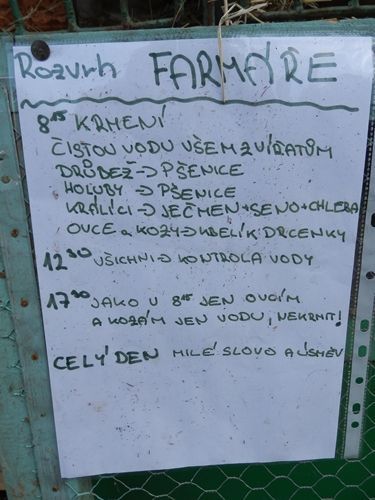 Rozvrh FARMÁŘE
8¹⁵ KRMENÍ
ČISTOU VODU VŠEM ZVÍŘATŮM
DRŮBEŽ → PŠENICE
HOLUBY → PŠENICE
KRÁLÍCI → JEČMEN + SENO + CHLEBA
OVCE a KOZY → KBELÍK DRCENKY
12³⁰ VŠICHNI → KONTROLA VODY
17³⁰ JAKO V 8¹⁵ JEN OVCÍM
A KOZÁM JEN VODU, NEKRMIT!
CELÝ DEN MILÉ SLOVO A ÚSMĚV